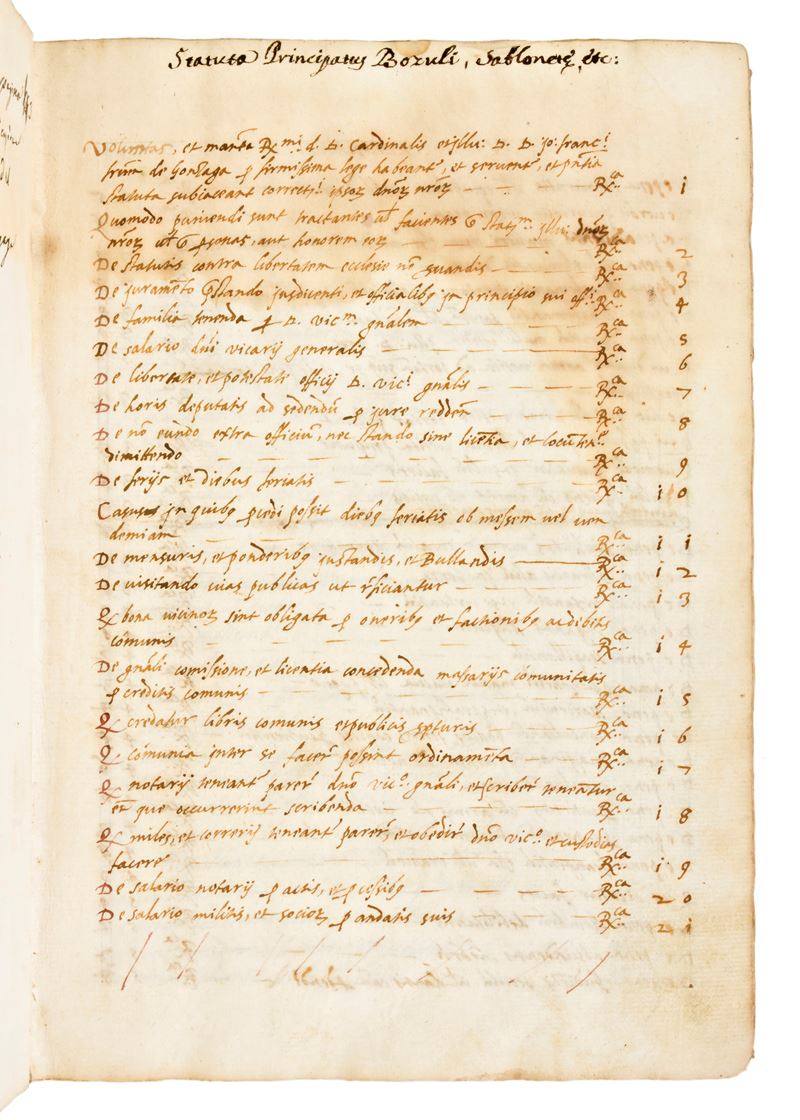 Statuta Principatus Bozuli, Sablonetę, etc:
Voluntas, et manta Rmi d. D. Cardinalis et Illu: D. D. Jo: franci
frum de Gonzaga ꝑ firmissima lege habeant, et serventr, et pntia
statuta subiaceant correcti ipsoꝝ dnoꝝ nroꝝ — — Rca 1
Quomodo puniendi sunt tractantes ul facientes ꝯ statm Illu: dnoꝝ
nroꝝ ul ꝯ ꝑsonas, aut honorem eoꝝ — — — Rca 2
De statutis contra libertatem ecclesie nō ħuandis — — Rca 3
De juramēto pstando jusdicenti, et officialibꝫ in principio sui offi Rca 4
De familia tenenda ꝑ D. vicm gnālem — — — Rca 5
De salario dni vicarij generalis — — — Rca 6
De libertate, et potestati officij D. vici gnālis — — — Rca 7
De horis deputatis ad sedendū ꝑ jure reddēn — — Rca 8
De nō eundo extra officiū, nec stando sine licēa, et locūten
dimittendo — — — — — Rca 9
De ferijs et diebus feriatis — — — — Rca 10
Casus in quibꝫ ꝓcedi possit diebꝫ feriatis ob messem vel ven
demiam — — — — — Rca 11
De mensuris, et ponderibꝫ iustandis, et Bullandis — Rca 12
De visitando vias publicas ut rficiantur — — — Rca 13
Q bona vicinoꝝ sint obligata ꝑ oneribꝫ et factionibꝫ ac debitis
cōmunis — — — — — Rca 14
De gnāli comissione, et licentia concedenda massarijs cōmunitatis
ꝑ creditis comunis — — — — Rca 15
Q credatur libris comunis et publicis sꝑturis — — Rca 16
Q cōmunia inter se facer possint ordinamēta — — Rca 17
Q notarij teneant parer dno vico gnāli, et scriber teneātur
et que occurrerint scribenda — — — Rca 18
Q miles, et correrij teneant parer, et obedir dno vico et custodias
facere — — — — Rca 19
De salario notarij ꝑ actis, et ꝓcessibꝫ — — — Rca 20
De salario militis, et socioꝝ ꝑ andatis suis — — — Rca 21